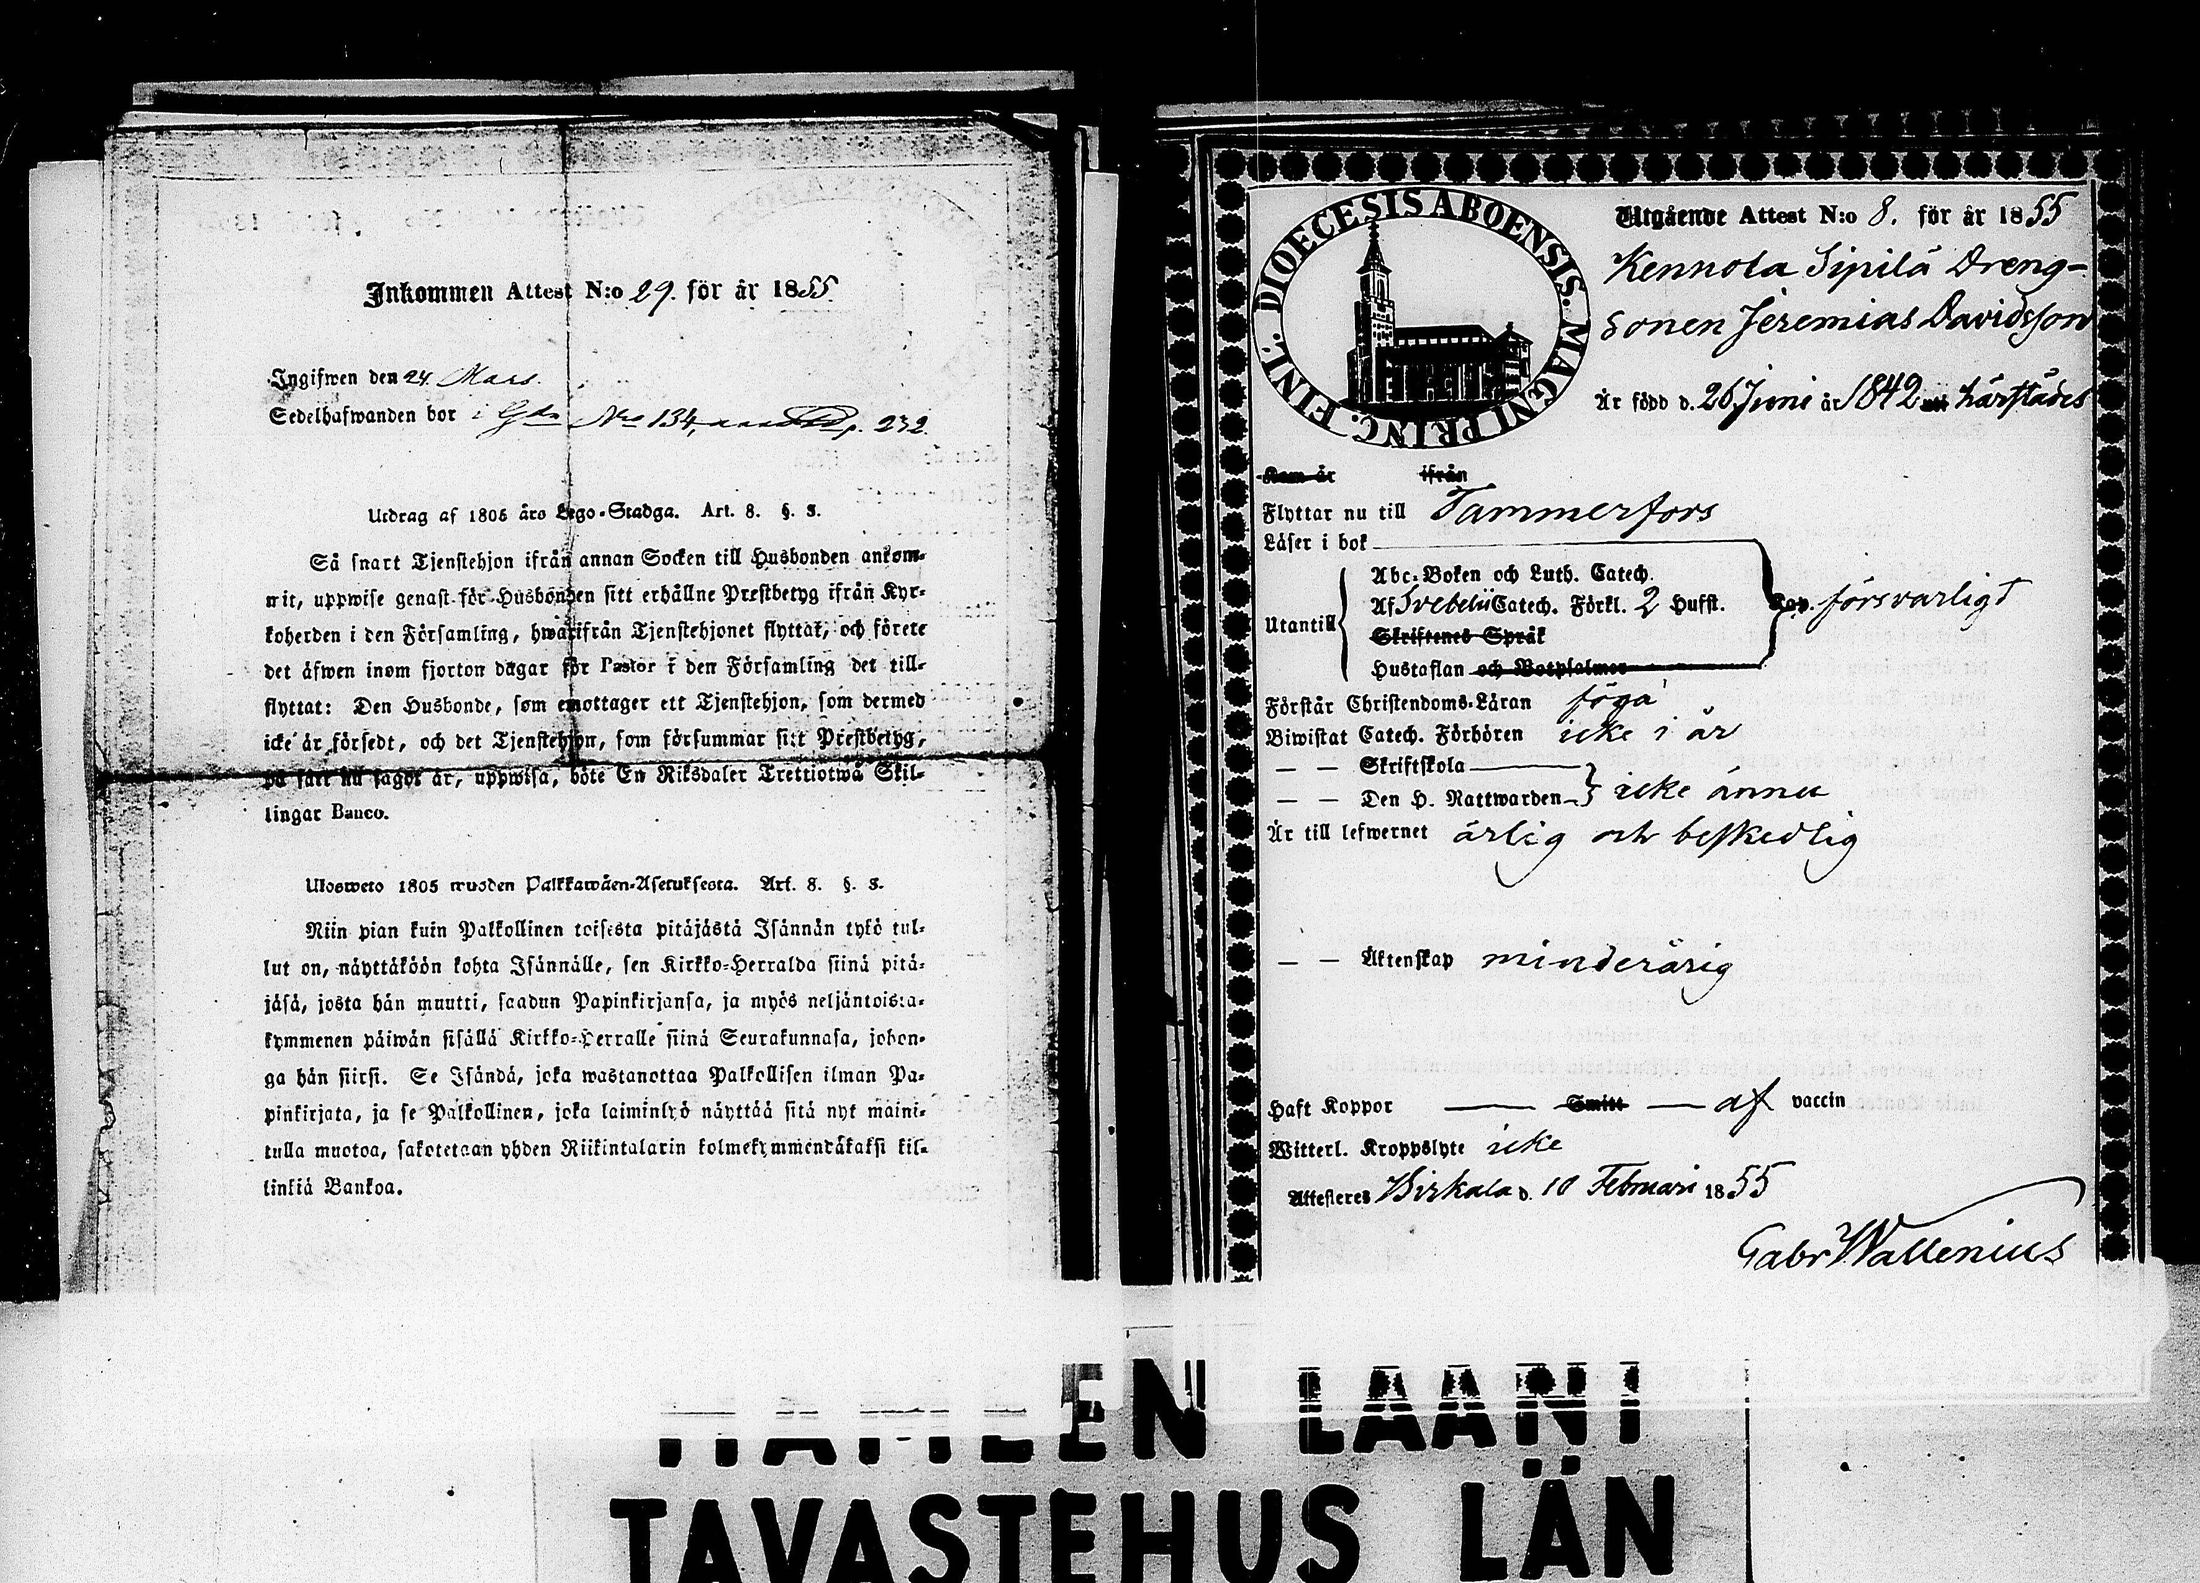 Inkommen Attest N:o 29. för år 1855.
Ingifwen den 24. Mars.
Sedelhafwanden bor i Gdn Nro 134, p. 232.
Utdrag af 1805 års Lego-Stadga. Art. 8. §. 3.
Så snart Tjenstehjon ifrån annan Socken till Husbonden ankom-
mit, uppwise genast för Husbonden sitt erhållne Prestbetyg ifrån Kyr-
koherden i den Församling, hwarifrån Tjenstehjonet flyttat, och förete
det äfwen inom fjorton dagar för Pastor i den Församling det till-
flyttat: Den Husbonde, som emottager ett Tjenstehjon, som dermed
icke är försedt, och det Tjenstehjon, som försummar sitt Prestbetyg,
på sätt nu sagdt är, uppwisa, böte En Riksdaler Trettiotwå Skil-
lingar Banco.
Ulosweto 1805 wuoden Palkkawäen-Asetuksesta. Art. 8. §. 3.
Niin pian kuin Palkollinen toisesta pitäjästä Isännän tykö tul-
lut on, näyttäköön kohta Isännälle, sen Kirkko-Herralda siinä pitä-
jäsä, josta hän muutti, saadun Papinkirjansa, ja myös neljäntoista-
kymmenen päiwän sisällä Kirkko-Herralle siinä Seurakunnasa, johon-
ga hän siirsi. Se Isändä, joka wastanottaa Palkollisen ilman Pa-
pinkirjata, ja se Palkollinen, joka laiminlyö näyttää sitä nyt maini-
tulla muotoa, sakotetaan yhden Riikintalarin kolmekymmendäkaksi kil-
linkiä Bankoa.
DIOECESIS ABOENSIS. MAGNI PRINC. FINL.
Utgående Attest N:o 8. för år 1855
Kennola Sipilä Dreng-
sonen Jeremias Davidsson
Är född d. 26 Juni år 1842 härstädes
Kom år ifrån
Flyttar nu till Tammerfors
Läser i bok
Utantill
Abc-Boken och Luth. Catech.
Af Svebelii Catech. Förkl. 2 Hufst. försvarligt
Skriftenes Språk
Hustaflan och Botpsalmer
Förstår Christendoms-Läran föga
Biwistat Catech. Förhören icke i år
— — Skriftskola
— — Den H. Nattwarden icke ännu
Är till lefwernet ärlig och beskedlig
— — Äktenskap minderårig
Haft Koppor — Smitt — af vaccin
Witterl. Kroppslyte icke
Attesteres Birkala d. 10 Februari 1855
Gabr Wallenius
HÄMEEN LÄÄNI
TAVASTEHUS LÄN